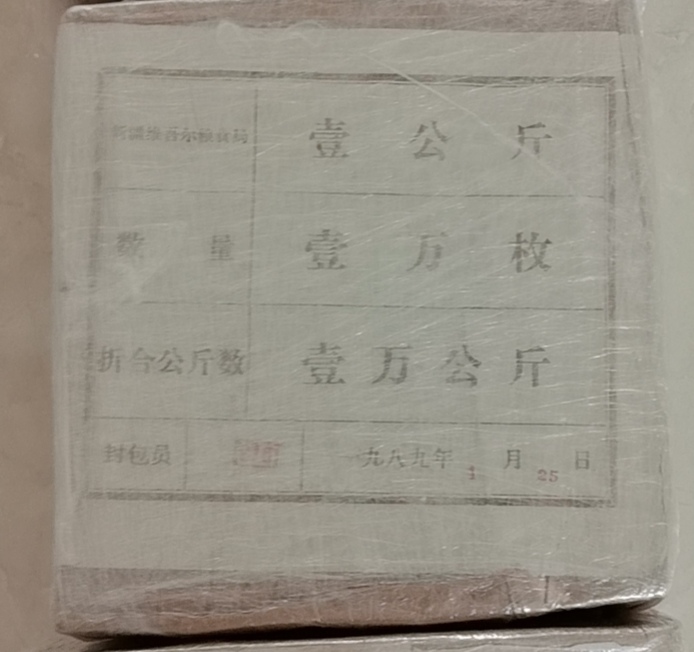 新疆维吾尔粮食局 壹公斤
数量 壹万枚
折合公斤数 壹万公斤
封包员 一九八九年 月 25 日